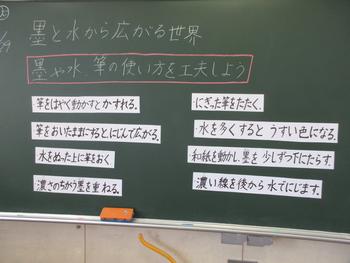 墨と水から広がる世界
墨や水、筆の使い方を工夫しよう
筆をはやく動かすとかすれる。
筆をおいたままにすると、にじんで広がる。
水をぬった上に筆をおく。
濃さのちがう墨を重ねる。
・にぎった筆をたたく。
・水を多くするとうすい色になる。
和紙を動かし、墨を少しずつ下にたらす
・濃い線を後から水でにじます。